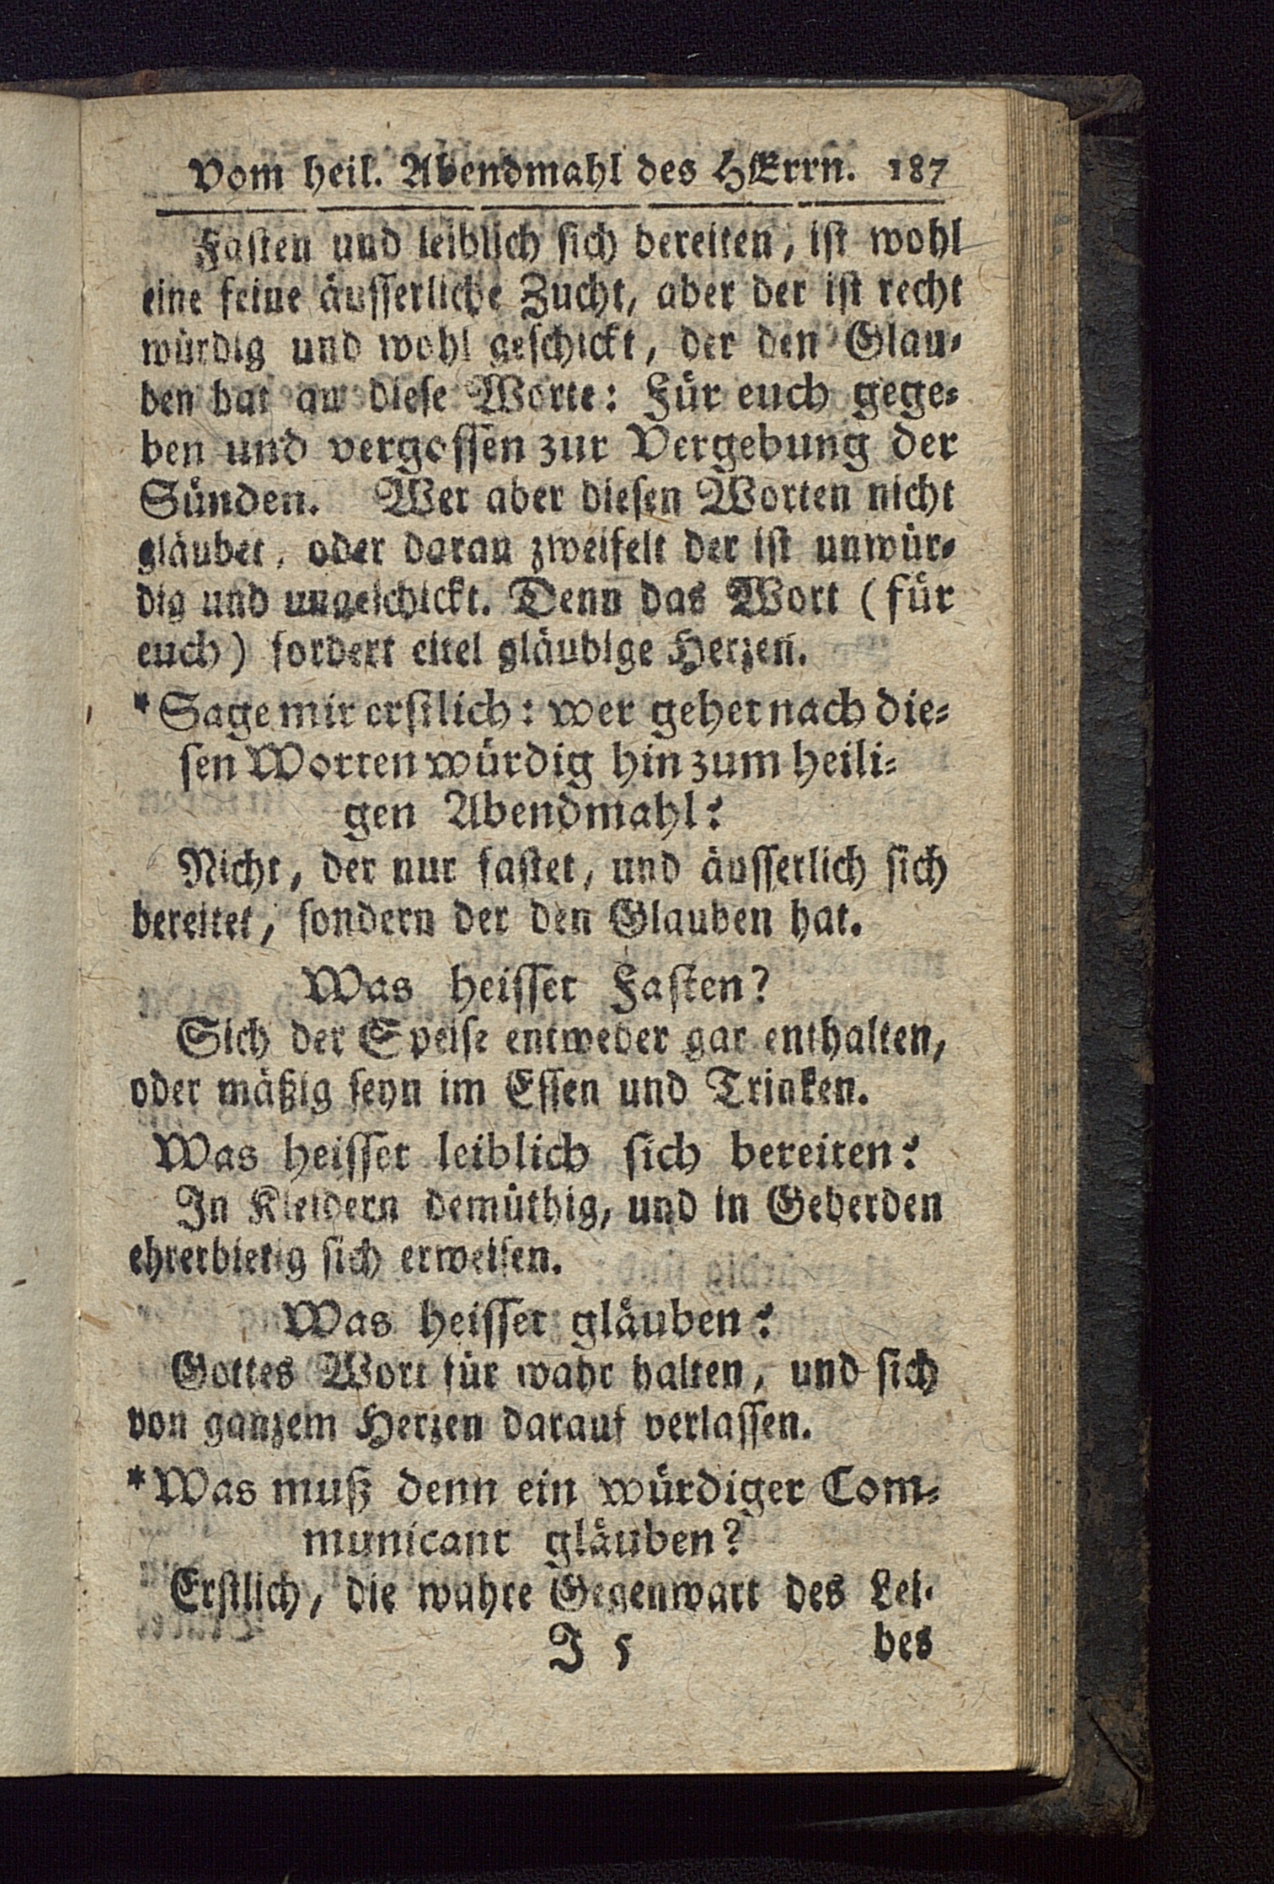 Vom heil. Abendmahl des HErrn. 187
Fasten und leiblich sich bereiten, ist wohl
eine feine äusserliche Zucht, aber der ist recht
würdig und wohl geschickt, der den Glau-
ben hat an diese Worte: Für euch gege-
ben und vergossen zur Vergebung der
Sünden. Wer aber diesen Worten nicht
gläubet, oder daran zweifelt der ist unwür-
dig und ungeschickt. Denn das Wort (für
euch) fordert eitel gläubige Herzen.
*Sage mir erstlich: wer gehet nach die-
sen Worten würdig hin zum heili-
gen Abendmahl?
Nicht, der nur fastet, und äusserlich sich
bereitet, sondern der den Glauben hat.
Was heisset Fasten?
Sich der Speise entweder gar enthalten,
oder mäßig seyn im Essen und Trinken.
Was heisset leiblich sich bereiten?
In Kleidern demüthig, und in Geberden
ehrerbietig sich erweisen.
Was heisset gläuben?
Gottes Wort für wahr halten, und sich
von ganzem Herzen darauf verlassen.
*Was muß denn ein würdiger Com-
municant gläuben?
Erstlich, die wahre Gegenwart des Lei-
J 5 bes